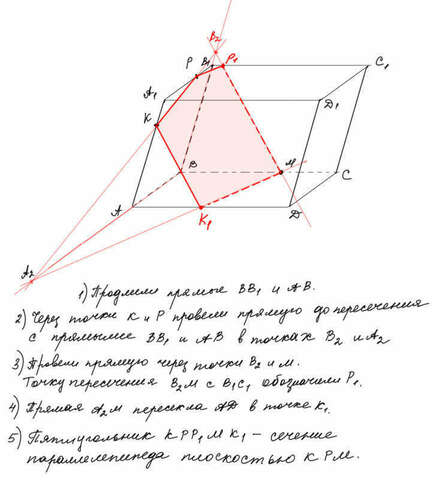 B₂
P
B₁
P₁
C₁
A₁
D₁
K
B
M
C
A
K₁
D
A₂
1) Продлили прямые BB₁ и AB.
2) Через точки K и P провели прямую до пересечения
с прямыми BB₁ и AB в точках B₂ и A₂
3) Провели прямую через точки B₂ и M.
Точку пересечения B₂M с B₁C₁ обозначили P₁.
4) Прямая A₂M пересекла AD в точке K₁.
5) Пятиугольник KPP₁MK₁ – сечение
параллелепипеда плоскостью KPM.